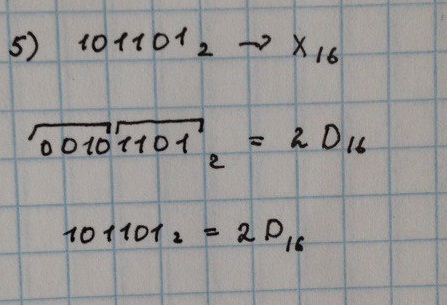 5) 101101₂ → X₁₆
0010 1101₂ = 2D₁₆
101101₂ = 2D₁₆